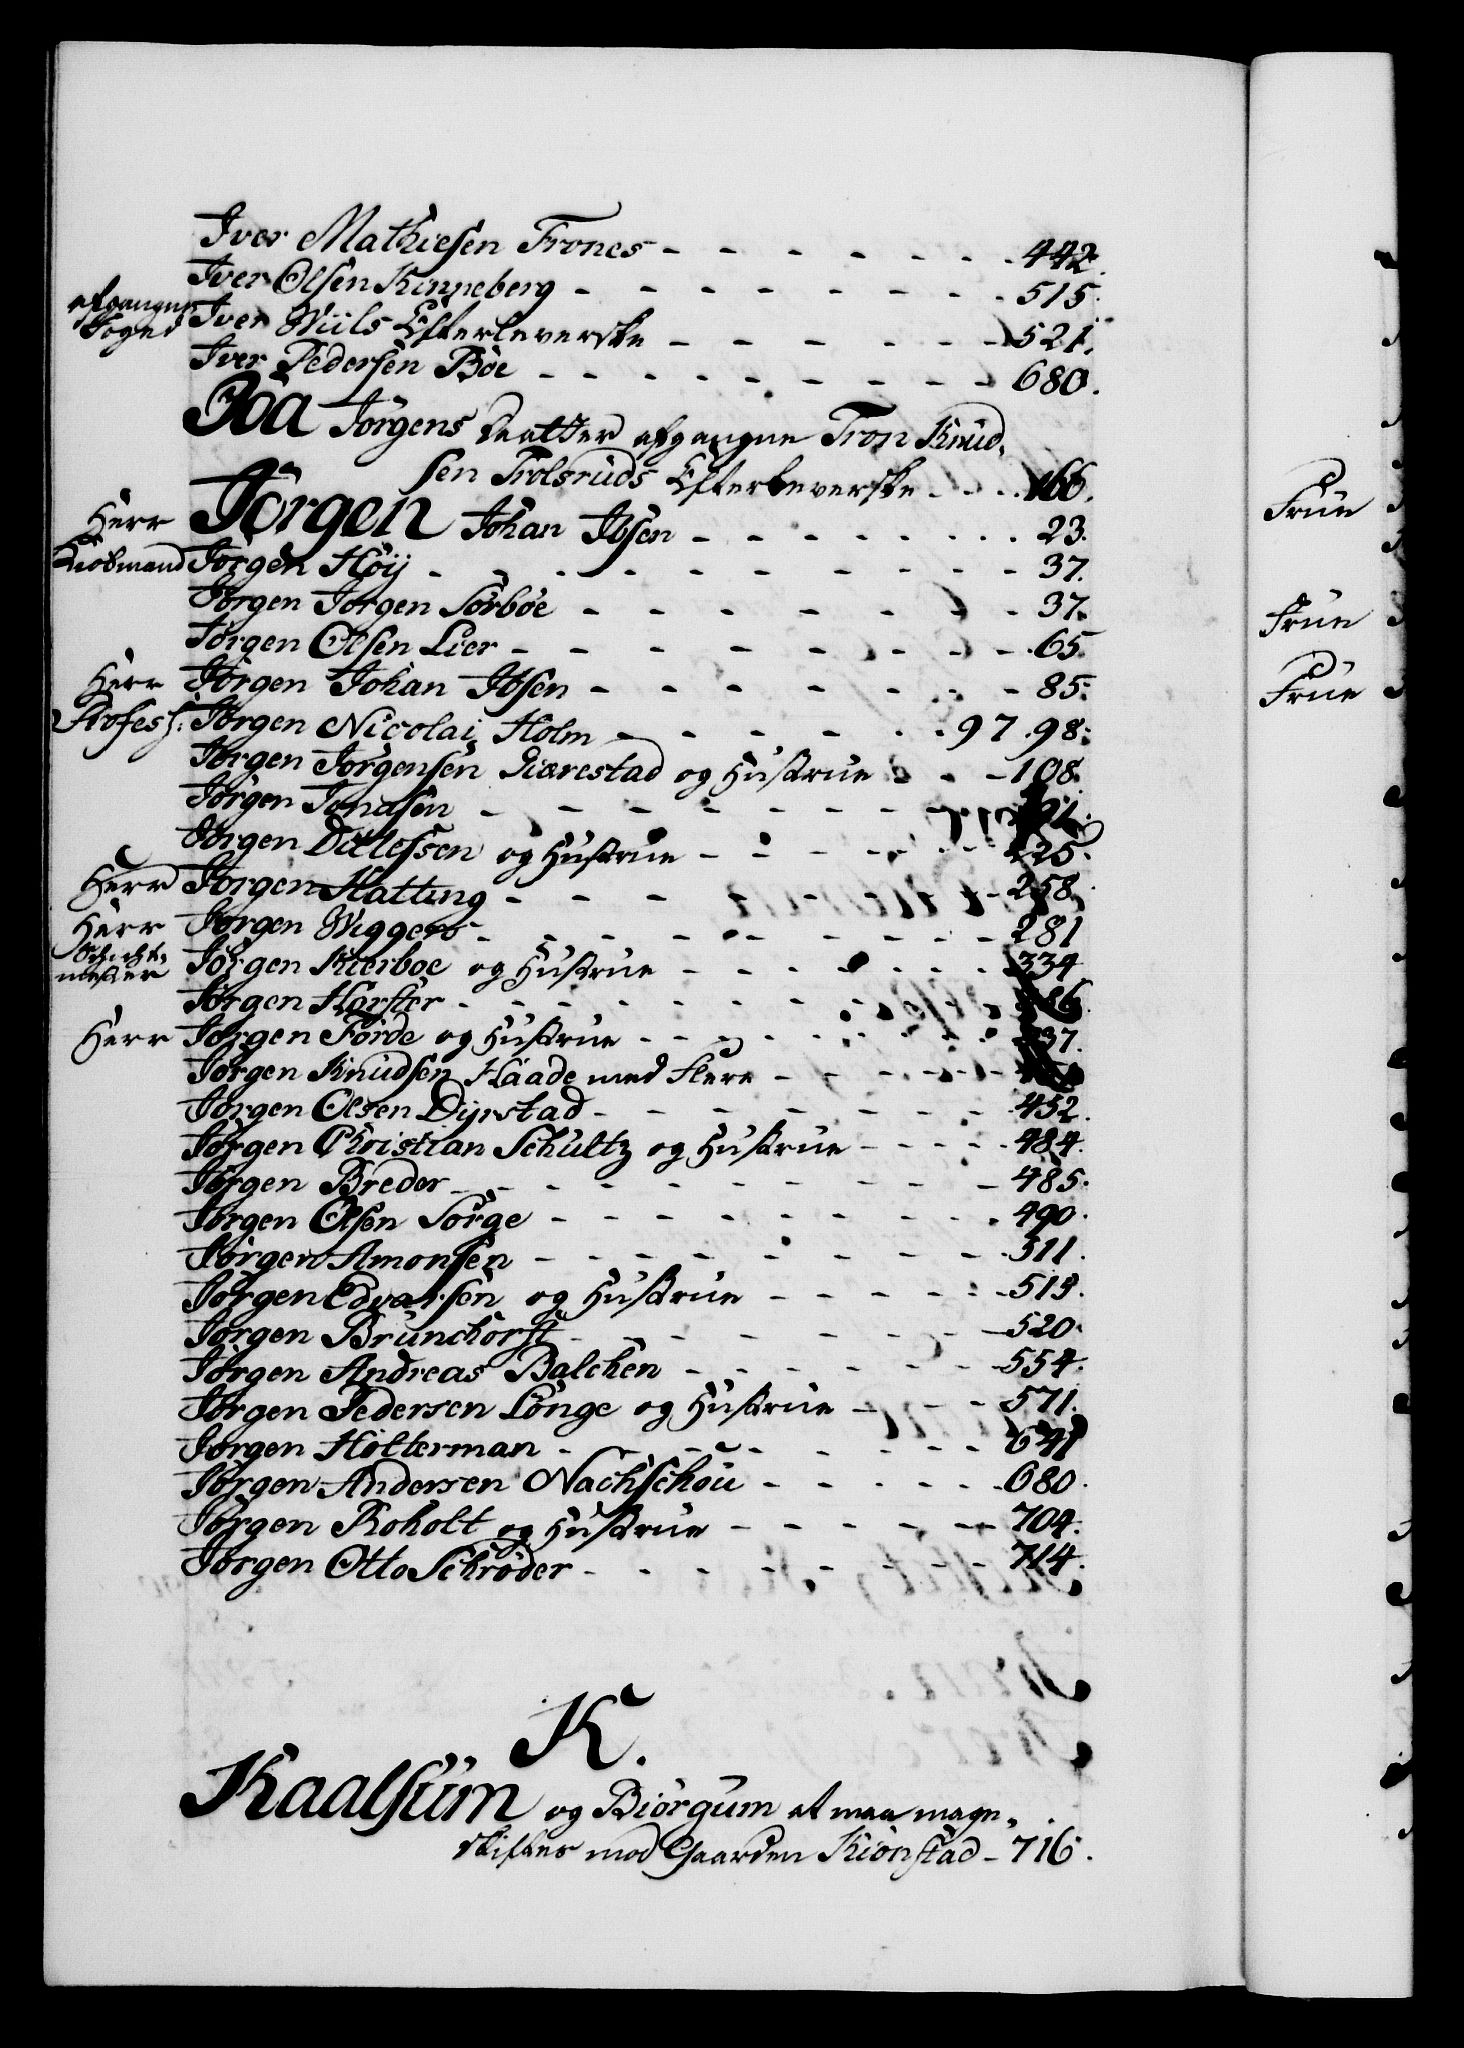 Iver Mathiesen Frones - - - - - - - 442.
Iver Olsen Kinneberg - - - - - - - - 515.
afgangne Foged Iver Wiils Efterleverske - - - - - - 521.
Iver Pedersen Böe - - - - - - - - 680.
Ida Jörgens Daatter afgangne Tron Knud-
sen Trolsruds Efterleverske - - - 166.
Herr Jörgen Johan Ibsen - - - - - - - - 23.
Kiobmand Jörgen Höÿ - - - - - - - - - - 37.
Jörgen Jörgen Sörböe - - - - - - - - 37.
Jörgen Olsen Lier - - - - - - - - - 65.
Herr Jörgen Johan Ibsen - - - - - - - - 85.
Profess: Jörgen Nicolai Holm - - - - - - 97. 98.
Jörgen Jörgensen Giærestad og Hustrue - - 108.
Jörgen Jonasen - - - - - - - -
Jörgen Ditlefsen og Hustrue - - - - - - 225.
Herr Jörgen Hatting - - - - - - - 258.
Herr Jörgen Wiggers - - - - - - - - - 281
Schichtmester Jörgen Kierboe og Hustrue - - - - - - 334
Jörgen Harster - - - - - - - - -
Herr Jörgen Förde og Hustrue - - - - - - -
Jörgen Knudsen Haade med Flere - - - - -
Jörgen Olsen Dyrstad - - - - - - - - 452.
Jörgen Christian Schultz og Hustrue - - - - 484.
Jörgen Breder - - - - - - - - - 485.
Jörgen Olsen Sörge - - - - - - - - - 490.
Jörgen Amonsen - - - - - - - - - 511.
Jörgen Edvarsen og Hustrue - - - - - 513.
Jörgen Brunchorst - - - - - - - - 520.
Jörgen Andreas Balchen - - - - - - - 554.
Jörgen Pedersen Lönge og Hustrue - - - - 571.
Jörgen Hölterman - - - - - - - - 641
Jörgen Andersen Nachschou - - - - - - 680.
Jörgen Roholt og Hustrue - - - - - - 704.
Jörgen Otto Schröder - - - - - - - 714.
K.
Kaalsum og Biörgum at maa mage-
skiftes mod Gaarden Kiönstad - 716.
Frue
Frue
Frue